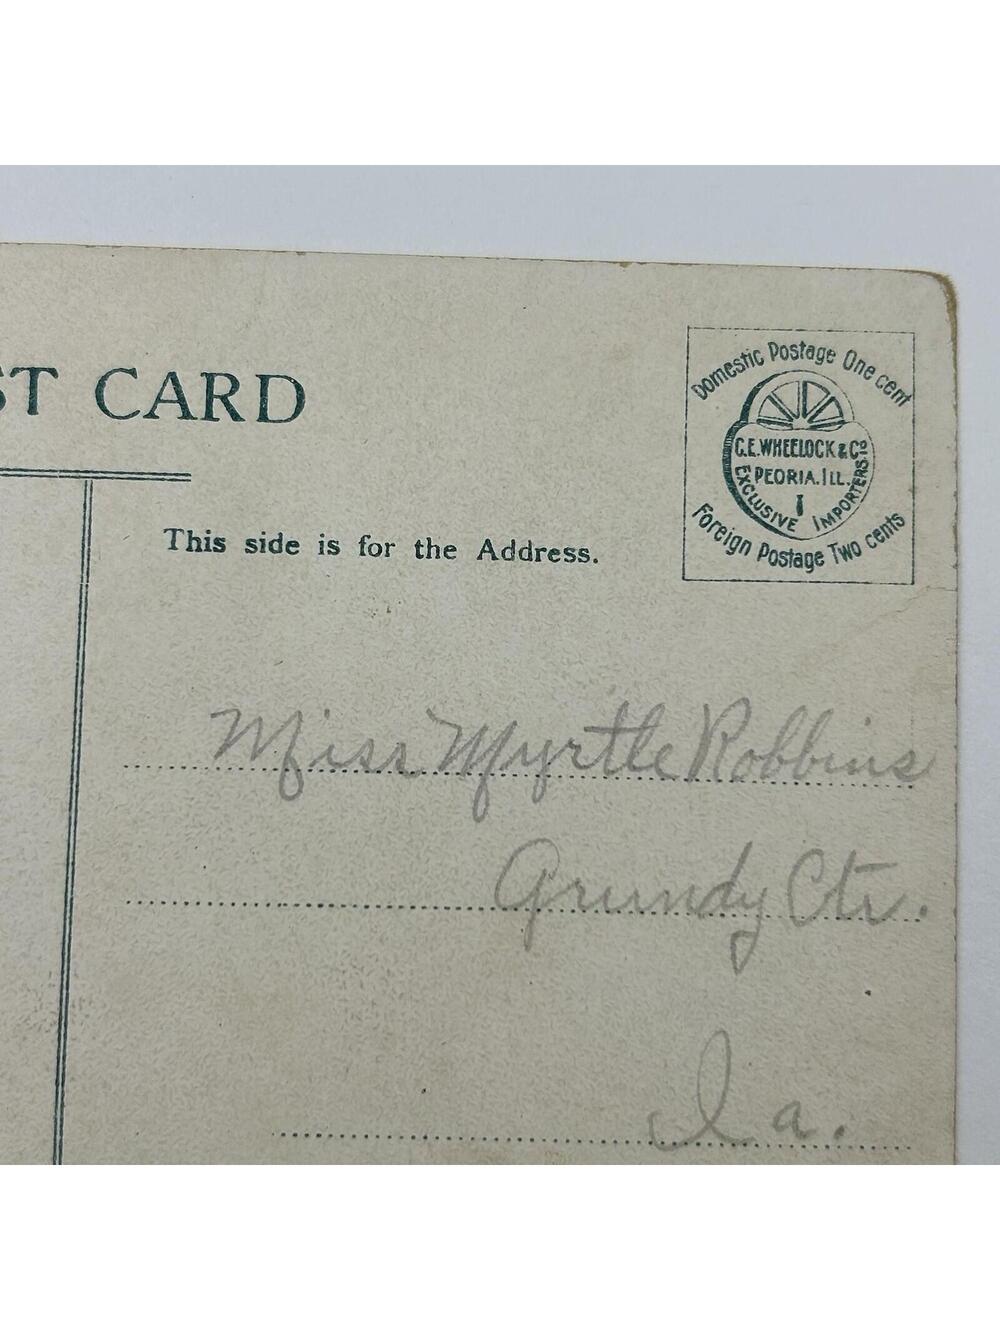 ST CARD
Domestic Postage One cent
C.E. WHEELOCK & Co
PEORIA. ILL.
EXCLUSIVE IMPORTERS
Foreign Postage Two cents
This side is for the Address.
Miss Myrtle Robbins
Grundy Ctr.
Ia.